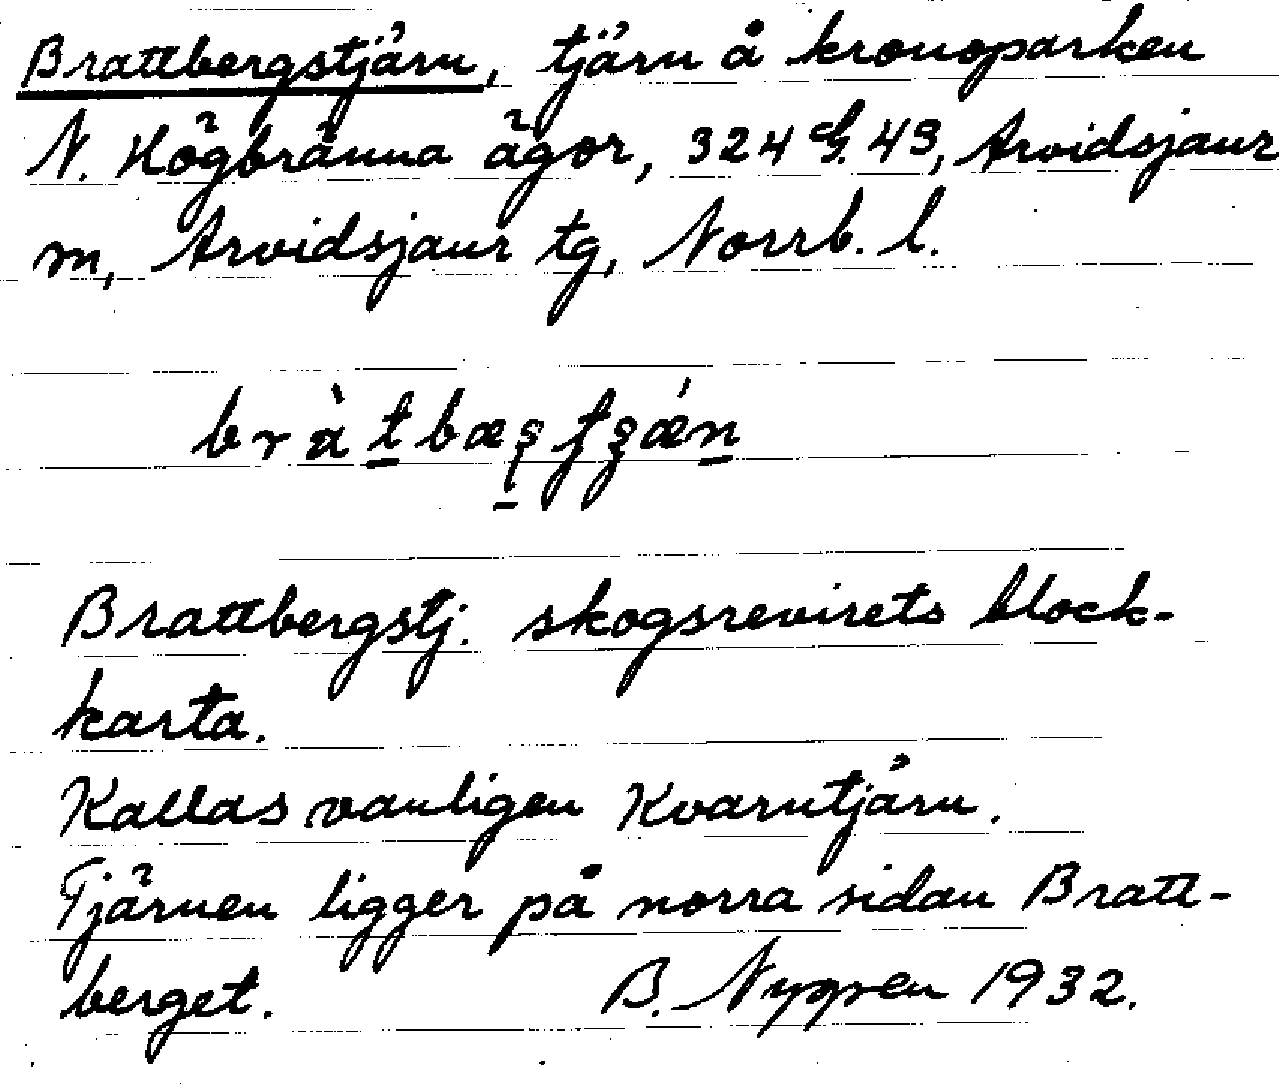 Brattbergstjärn, tjärn å kronoparken
N. Högbränna ägor, 324 G. 43, Arvidsjaur
m, Arvidsjaur tg, Norrb. l.
Brattbergstj. skogsrevirets block-
karta.
Kallas vanligen Kvarntjärn.
Tjärnen ligger på norra sidan Bratt-
berget. B. Nygren 1932.